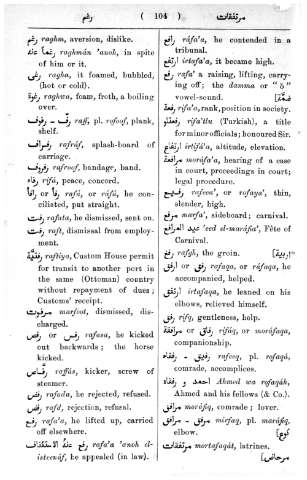 رغم
( 104 )
مرتفقات
رغم raghm, aversion, dislike.
رغماً عنه raghmán 'anoh, in spite
of him or it.
رغى ragha, it foamed, bubbled,
(hot or cold).
رغوة raghwa, foam, froth, a boiling
over.
رفّ - رفوف raff, pl. rofoof, plank,
shelf.
رفراف rafráf, splash-board of
carriage.
رفروف rafroof, bandage, band.
رفاء rifá, peace, concord.
رفأ or رافأ rafá, or ráfá, he con-
ciliated, put straight.
رفت rafata, he dismissed, sent on.
رفت raft, dismissal from employ-
ment.
رفتية raftíya, Custom House permit
for transit to another port in
the same (Ottoman) country
without repayment of dues;
Customs' receipt.
مرفوت marfoot, dismissed, dis-
charged.
رفس or رفص rafasa, he kicked
out backwards; the horse
kicked.
رفاص raffás, kicker, screw of
steamer.
رفض rafada, he rejected, refused.
رفض rafd, rejection, refusal.
رفع rafa'a, he lifted up, carried
off elsewhere.
رفع عنه الاستئناف rafa'a 'anoh el-
isteenáf, he appealed (in law).
رافع ráfa'a, he contended in a
tribunal.
ارتفع irtafa'a, it became high.
رفع rafa' a raising, lifting, carry-
ing off; the damma or "ŏ"
vowel-sound. [ضمّة
رفعة rifa'a, rank, position in society.
رفعتلو rifa'tlu (Turkish), a title
for minor officials; honoured Sir.
ارتفاع irtifá'a, altitude, elevation.
مرافعة moráfa'a, hearing of a case
in court, proceedings in court;
legal procedure.
رفيع rafeea', or rafaya', thin,
slender, high.
مرفع marfa', sideboard; carnival.
عيد المرافع 'eed el-maráfia', Fête of
Carnival.
رفغ rafgh, the groin. [اربية
رفق or رافق rafaqa, or ráfaqa, he
accompanied, helped.
ارتفق irtafaqa, he leaned on his
elbows, relieved himself.
رفق rifq, gentleness, help.
رفاق or مرافقة rifáq, or moráfaqa,
companionship.
رفيق - رفقاء rafeeq, pl. rofaqá,
comrade, accomplices.
احمد و رفقاه Ahmed wa rofaqáh,
Ahmed and his fellows (& Co.).
مرافق moráfiq, comrade; lover.
مرفق - مرافق mirfaq, pl. maráfiq,
elbow. [كوع
مرتفقات mortafaqát, latrines.
[مرحاض